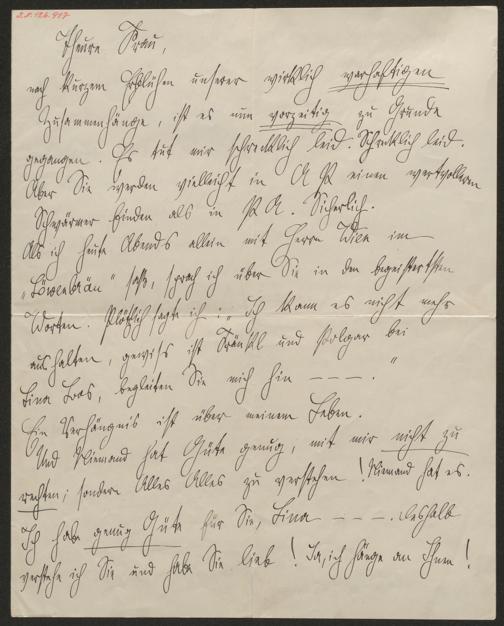 I.N. 124.917
Theure Frau,
nach kurzem Erblühen unserer wirklich warhaftigen
Zusammenhänge, ist es nun vorzeitig zu Grunde
gegangen. Es tut mir schrecklich leid. Schrecklich leid.
Aber Sie werden vielleicht in A P einen wertvolleren
Schwärmer finden als in P A. Sicherlich.
Als ich heute Abends allein mit Herrn im
"Löwenbräu" saß, sprach ich über Sie in den begeistertsten
Worten. Plötzlich sagte ich: "Ich kann es nicht mehr
aushalten, gewiss ist Fränzl und Polgar bei
Lina Loos, begleiten Sie mich hin – – – ."
Ein Verhängnis ist über meinem Leben.
Und Niemand hat Güte genug, mit mir nicht zu
rechten; sondern Alles Alles zu verstehen! Niemand hat es.
Ich habe genug Güte für Sie, Lina – – – . Deshalb
verstehe ich Sie und habe Sie lieb! Ja, ich hänge an Ihnen!